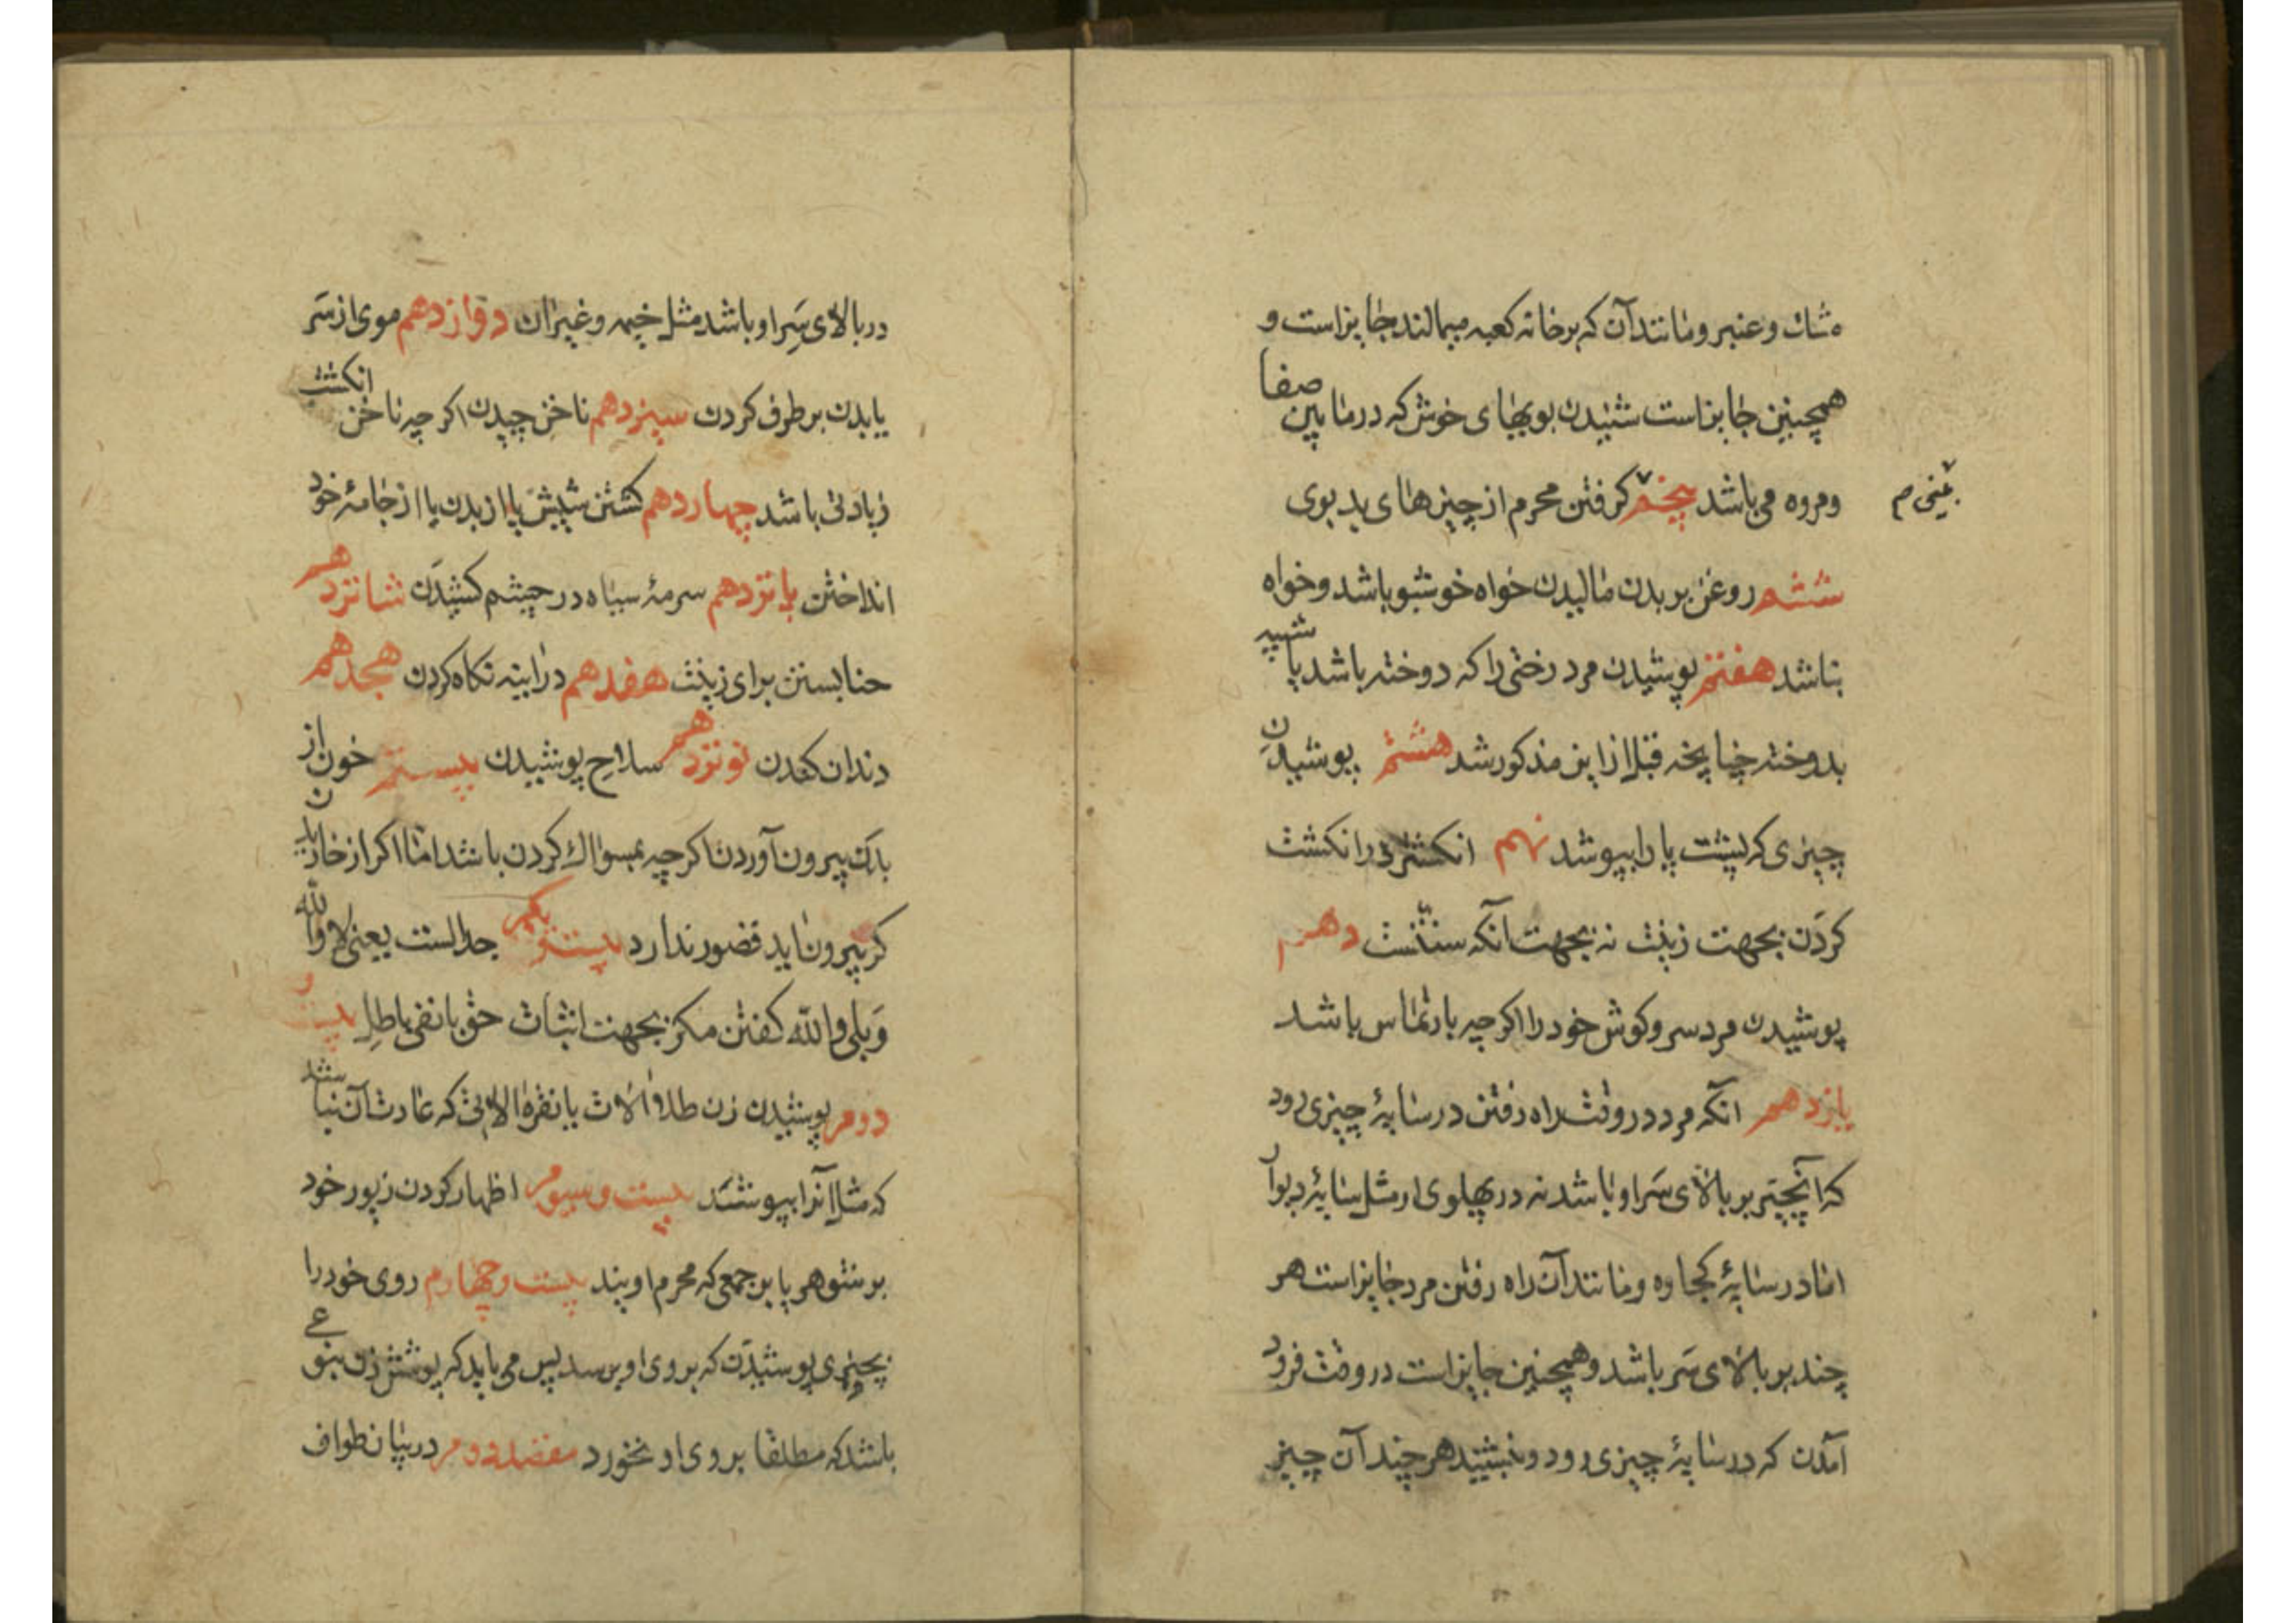 مشك و عنبر و مانند آن که بر خانه کعبه میمالند جایز است و
همچنین جایز است شنیدن بویهای خوش که در مابین صفا
و مروه می باشد پنجم گرفتن محرم از چیزهای بد بوی
بینی م
ششم روغن بر بدن مالیدن خواه خوشبو باشد و خواه
نباشد هفتم پوشیدن مرد رختی را که دوخته باشد یا شبیه
بدوخته چنانچه قبل از این مذکور شد هشتم پوشیدن
چیزی که پشت پا را بپوشد نهم انکشتر در انکشت
کردن بجهت زینت نه بجهت آنکه سنتست دهم
پوشیدن مرد سر و کوش خود را اکر چه بارتماس باشد
یازدهم آنکه مرد در وقت راه رفتن در سایۀ چیزی رود
که آنچیز بر بالای سر او باشد نه در پهلوی او مثل سایۀ دیوار
اما در سایۀ کجاوه و مانند آن راه رفتن مرد جایز است هر
چند بر بالای سر باشد و همچنین جایز است در وقت فرود
آمدن که در سایۀ چیزی رود و بنشیند هر چند آن چیز
در بالای سر او باشد مثل خیمه و غیر ان دوازدهم موی از سر
یا بدن بر طرف کردن سیزدهم ناخن چیدن اکر چه ناخن انکشت
زیادتی باشد چهاردهم کشتن شپش یا از بدن یا از جامۀ خود
انداختن پانزدهم سرمۀ سیاه در چشم کشیدن شانزدهم
حنا بستن برای زینت هفدهم در اینه نکاه کردن هجدهم
دندان کندن نوزدهم سلاح پوشیدن بیستم خون از
بدن بیرون آوردن اکر چه بمسواك کردن باشد اما اکر از خاریدن
کر بیرون اید قصور ندارد بیست یکم جدالست یعنی لا والله
و بلی والله کفتن مکر بجهت اثبات حق یا نفی باطل بیست و
دوم پوشیدن زن طلا الات یا نقره الاتی که عادت آن نباشد
که مثل آنرا بپوشد بیست و سیوم اظهار کردن زیور خود
بر شوهر یا بر جمعی که محرم اویند بیست و چهارم روی خود را
بچیزی پوشیدن که بروی او برسد پس می باید که پوشش زن بنوعی
باشد که مطلقا بروی او نخورد مقصد دوم در بیان طواف